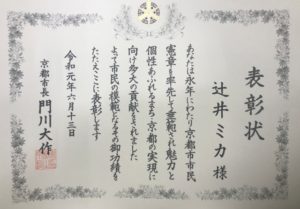 表彰状
辻井ミカ 様
あなたは永年にわたり京都市市民
憲章を率先して実践され魅力と
個性あふれるまち京都の実現に
向け多大の貢献をされました
よって市民の模範となるその御功績を
たたえここに表彰します
令和元年六月十三日
京都市長 門川大作